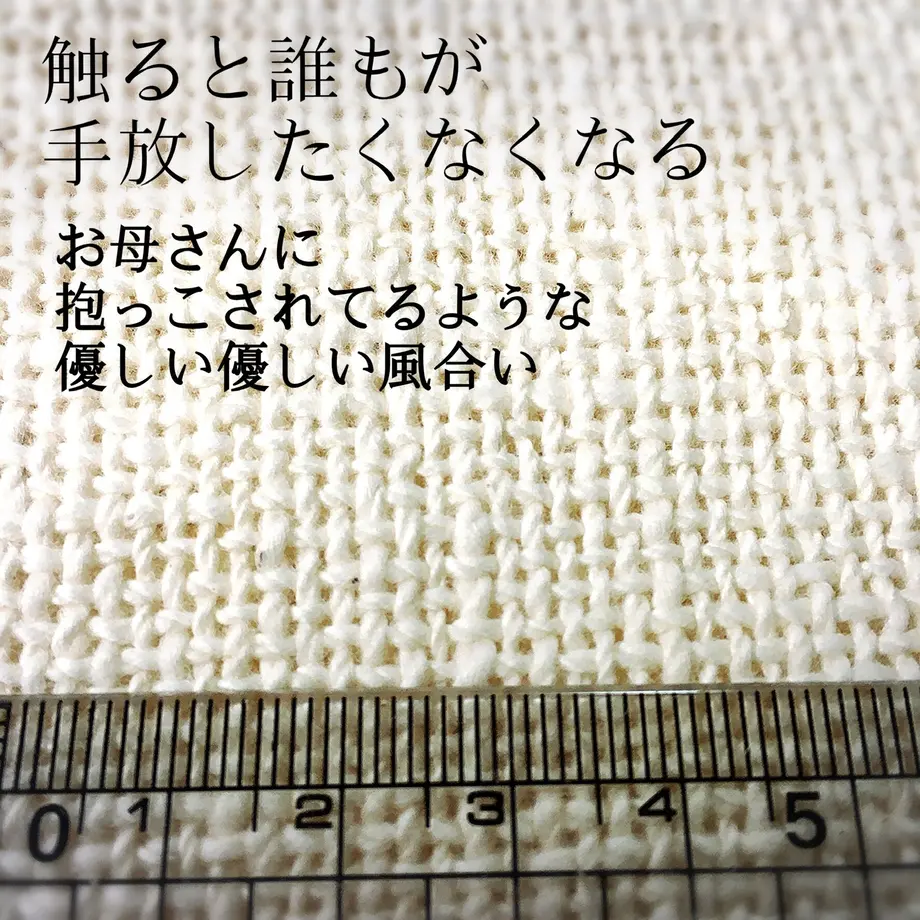 触ると誰もが
手放したくなくなる
お母さんに
抱っこされてるような
優しい優しい風合い
0 1 2 3 4 5